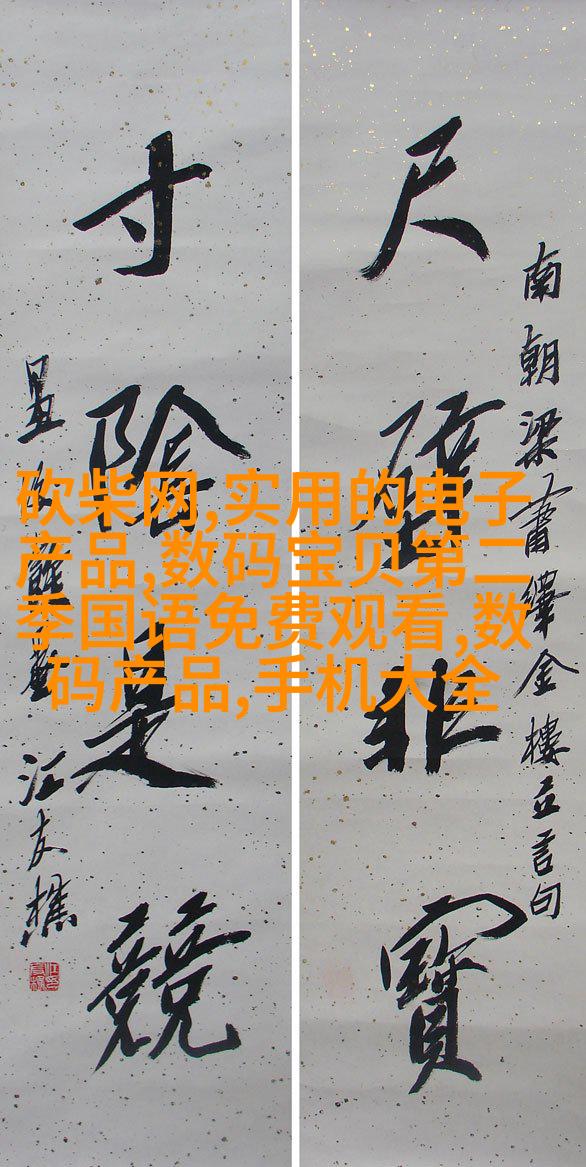 南朝梁蕭繹金樓立言句
尺璧非寶
寸陰是競
江友樵
砍柴网,实用的电子
产品,数码宝贝第二
季国语免费观看,数
码产品,手机大全